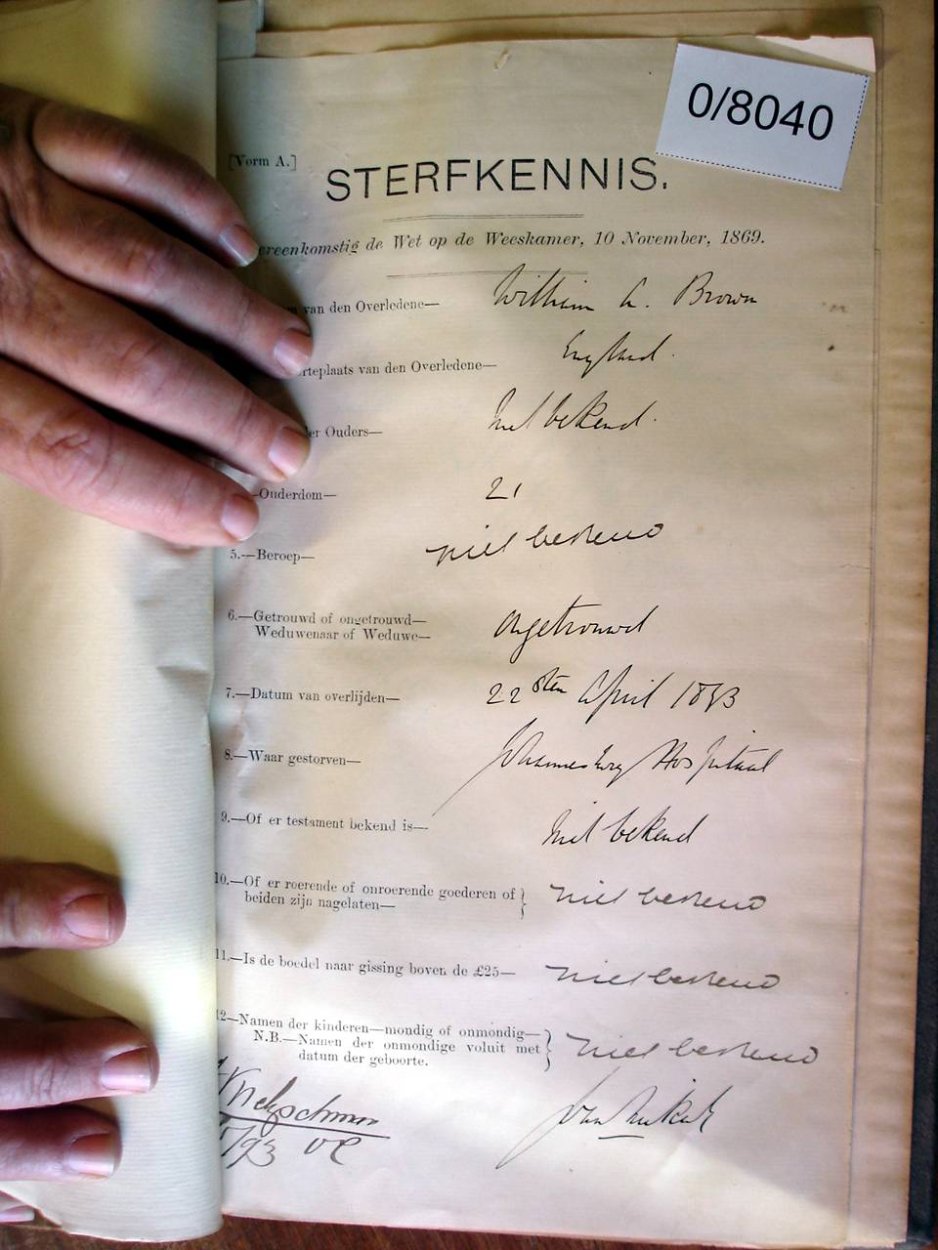 0/8040
[Vorm A.]
STERFKENNIS.
ereenkomstig de Wet op de Weeskamer, 10 November, 1869.
van den Overledene— William A. Brown
rteplaats van den Overledene— England.
der Ouders— Niet bekend.
—Ouderdom— 21
5.—Beroep— niet bekend
6.—Getrouwd of ongetrouwd—
Weduwenaar of Weduwe— ongetrouwd
7.—Datum van overlijden— 22sten April 1893
8.—Waar gestorven— Johannesburg Hospitaal
9.—Of er testament bekend is— Niet bekend
10.—Of er roerende of onroerende goederen of
beiden zijn nagelaten— niet bekend
11.—Is de boedel naar gissing boven de £25— niet bekend
12—Namen der kinderen—mondig of onmondig—
N.B.—Namen der onmondige voluit met
datum der geboorte. niet bekend
/93